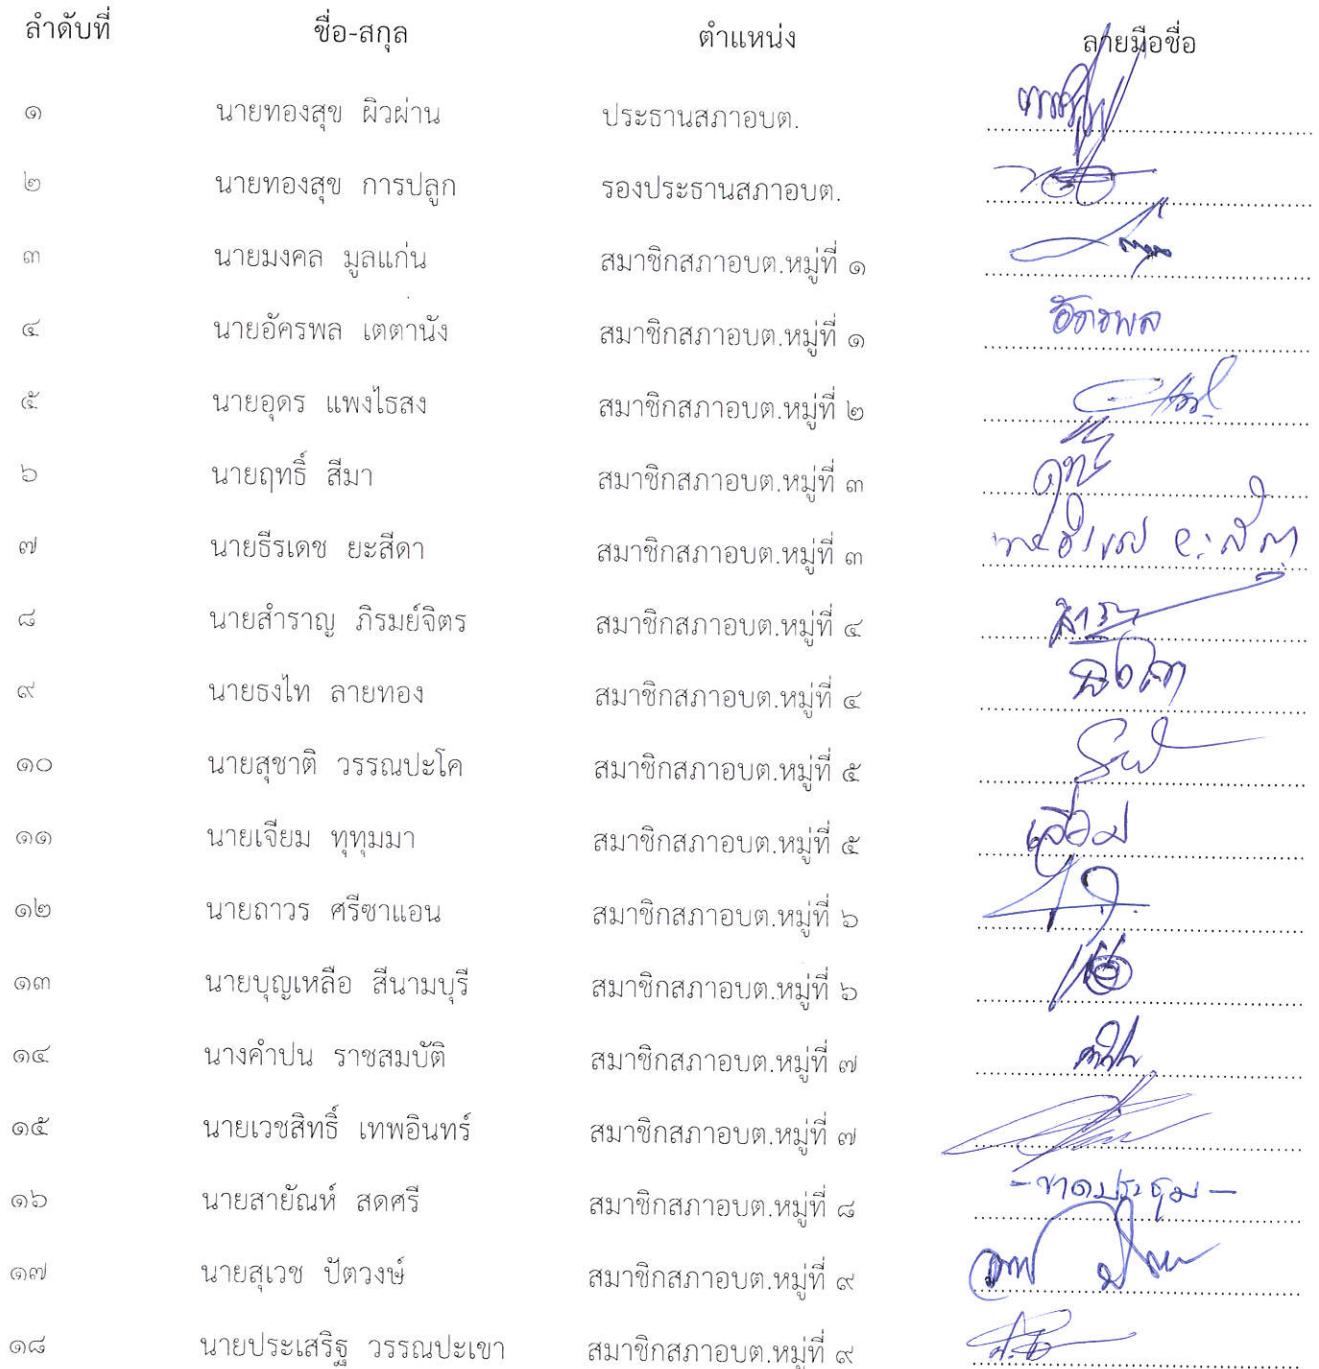 ลำดับที่ ชื่อ-สกุล ตำแหน่ง ลายมือชื่อ
๑ นายทองสุข ผิวผ่าน ประธานสภาอบต.
๒ นายทองสุข การปลูก รองประธานสภาอบต.
๓ นายมงคล มูลแก่น สมาชิกสภาอบต.หมู่ที่ ๑
๔ นายอัครพล เตตานัง สมาชิกสภาอบต.หมู่ที่ ๑ อัครพล
๕ นายอุดร แพงไธสง สมาชิกสภาอบต.หมู่ที่ ๒
๖ นายฤทธิ์ สีมา สมาชิกสภาอบต.หมู่ที่ ๓
๗ นายธีรเดช ยะสีดา สมาชิกสภาอบต.หมู่ที่ ๓ นายธีรเดช ยะสีดา
๘ นายสำราญ ภิรมย์จิตร สมาชิกสภาอบต.หมู่ที่ ๔
๙ นายธงไท ลายทอง สมาชิกสภาอบต.หมู่ที่ ๔
๑๐ นายสุชาติ วรรณปะโค สมาชิกสภาอบต.หมู่ที่ ๕
๑๑ นายเจียม ทุทุมมา สมาชิกสภาอบต.หมู่ที่ ๕ เจียม
๑๒ นายถาวร ศรีซาแอน สมาชิกสภาอบต.หมู่ที่ ๖
๑๓ นายบุญเหลือ สีนามบุรี สมาชิกสภาอบต.หมู่ที่ ๖
๑๔ นางคำปน ราชสมบัติ สมาชิกสภาอบต.หมู่ที่ ๗
๑๕ นายเวชสิทธิ์ เทพอินทร์ สมาชิกสภาอบต.หมู่ที่ ๗
๑๖ นายสายัณห์ สดศรี สมาชิกสภาอบต.หมู่ที่ ๘ -ขาดประชุม-
๑๗ นายสุเวช ปัตวงษ์ สมาชิกสภาอบต.หมู่ที่ ๙
๑๘ นายประเสริฐ วรรณปะเขา สมาชิกสภาอบต.หมู่ที่ ๙